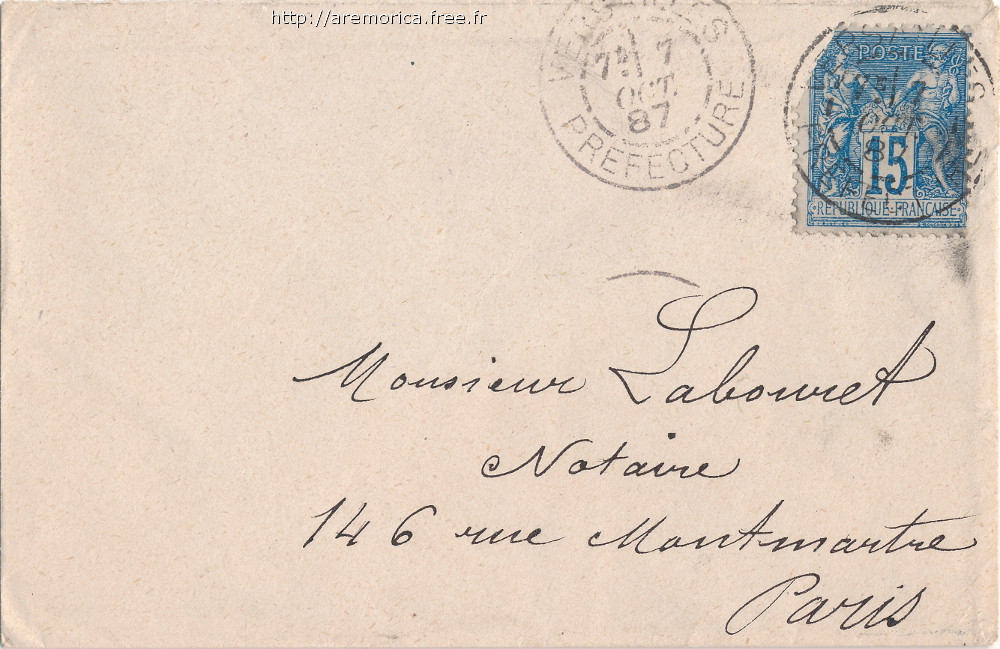 http://aremorica.free.fr
VERSAILLES
7E 7
OCT.
87
PREFECTURE
POSTE
15
REPUBLIQUE-FRANCAISE
Monsieur Labouret
Notaire
146 rue Montmartre
Paris